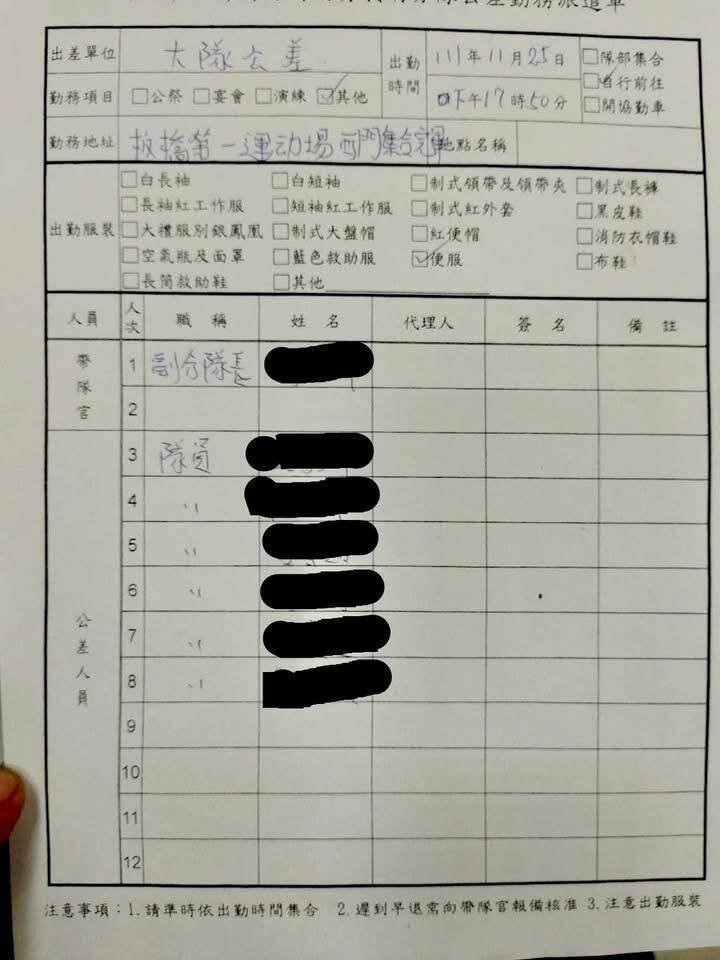 公差勤務派遣單
出差單位 大隊公差 出勤時間 111年11月25日 □隊部集合
下午17時50分 ☑自行前往
勤務項目 □公祭 □宴會 □演練 ☑其他 □開協勤車
勤務地址 板橋第一運动場西門集合完畢 地點名稱
出勤服裝
□白長袖 □白短袖 □制式領帶及領帶夾 □制式長褲
□長袖紅工作服 □短袖紅工作服 □制式紅外套 □黑皮鞋
□大禮服別銀鳳凰 □制式大盤帽 □紅便帽 □消防衣帽鞋
□空氣瓶及面罩 □藍色救助服 ☑便服 □布鞋
□長筒救助鞋 □其他
人員 人次 職稱 姓名 代理人 簽名 備註
帶隊官
1 副分隊長
2
公差人員
3 隊員
4 〃
5 〃
6 〃
7 〃
8 〃
9
10
11
12
注意事項：1.請準時依出勤時間集合 2.遲到早退需向帶隊官報備核准 3.注意出勤服裝